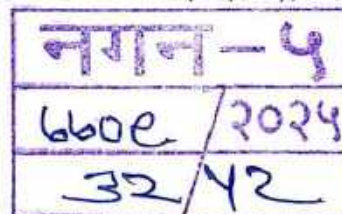 नगन - ५
७७०९ / २०२५
३२ / ५२